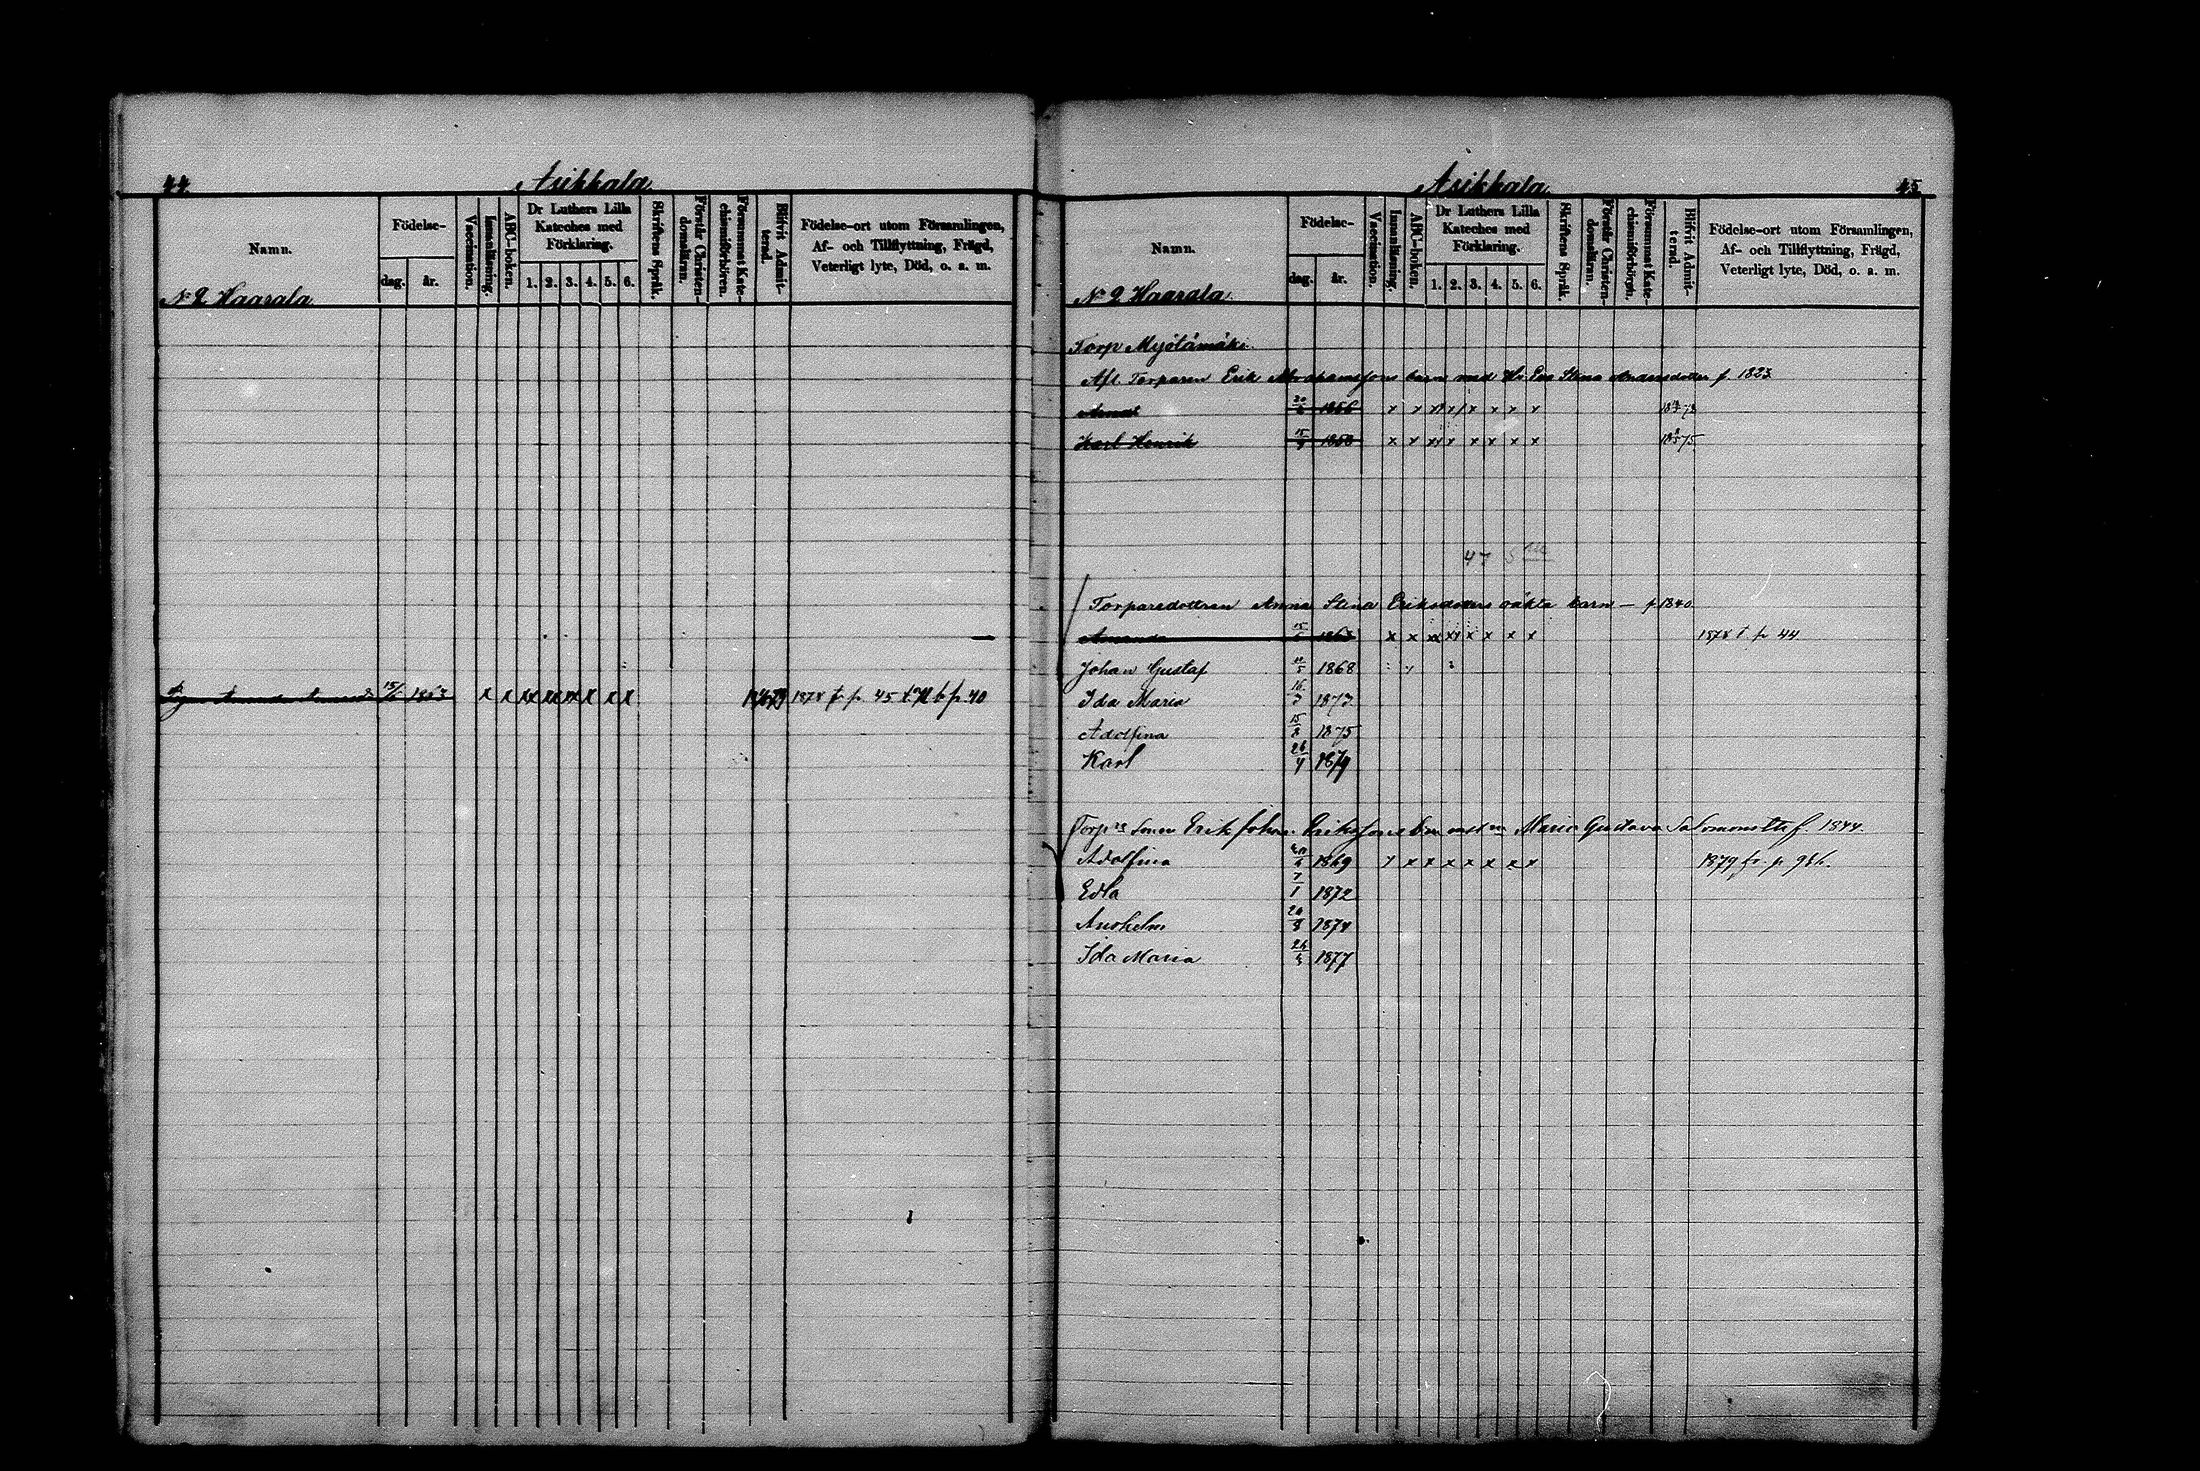 44
Asikkala
Namn.
Födelse-
dag.
år.
Vaccination.
Innanläsning.
ABC-boken.
Dr Luthers Lilla Kateches med Förklaring.
1. 2. 3. 4. 5. 6.
Skriftens Språk.
Förstår Christendomsläran.
Försummat Katechismiförhören.
Blifvit Admitterad.
Födelse-ort utom Församlingen,
Af- och Tillflyttning, Frägd,
Veterligt lyte, Död, o. a. m.
No 2 Haarala
15/6 1863 x x xx xx xx x x x 1878 fr p. 45 p. 40
Asikkala
45
Namn.
Födelse-
dag.
år.
Vaccination.
Innanläsning.
ABC-boken.
Dr Luthers Lilla Kateches med Förklaring.
1. 2. 3. 4. 5. 6.
Skriftens Språk.
Förstår Christendomsläran.
Försummat Katechismiförhören.
Blifvit Admitterad.
Födelse-ort utom Församlingen,
Af- och Tillflyttning, Frägd,
Veterligt lyte, Död, o. a. m.
No 2 Haarala.
Torp Myötämäki
Afl. Torparen Erik Abrahamssons barn med Hu Eva Stina Andersdotter f. 1823
1856 x x x x x x x x
Karl Henrik 15 1858 x x xx x x x x x 75
47
Torparedottren Anna Stina Eriksdotters oäkta barn — f 1840
Amanda 15 1863 x x xx xx x x x x 1878 t p 44
Johan Gustaf 1868
Ida Maria 16/3 1873
Adolfina 15/8 1875
Karl 26/4 1879
Torp Sonen Erik Johan Erikssons barn med Maria Gustava Salomonsdr f. 1844
Adolfina 1869 x x x x x x x x 1879 fr. p.
Edla 7/1 1872
Anshelm 1874
Ida Maria 1877